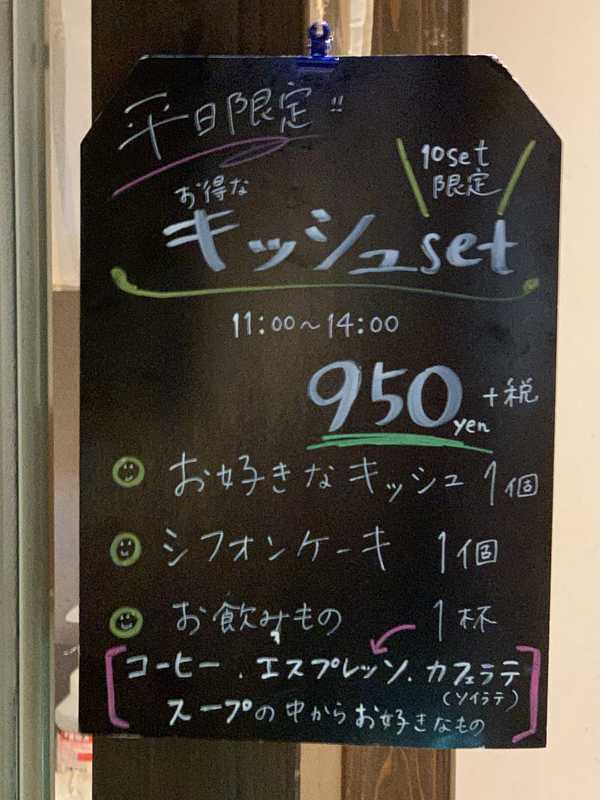 平日限定!!
10set
限定
お得な
キッシュset
11:00〜14:00
950yen +税
お好きなキッシュ 1個
シフォンケーキ 1個
お飲みもの 1杯
コーヒー．エスプレッソ．カフェラテ
(ソイラテ)
スープの中からお好きなもの